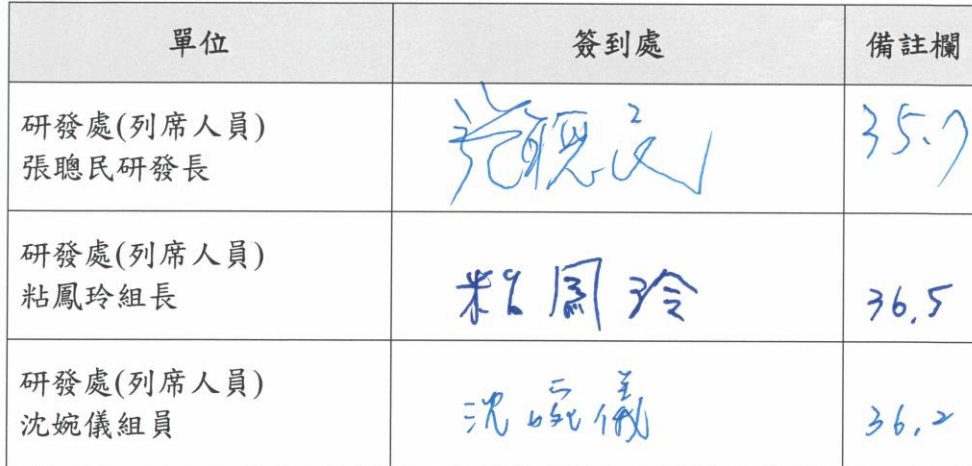 單位 簽到處 備註欄
研發處(列席人員)
張聰民研發長 張聰民 35.7
研發處(列席人員)
粘鳳玲組長 粘鳳玲 36.5
研發處(列席人員)
沈婉儀組員 沈婉儀 36.2